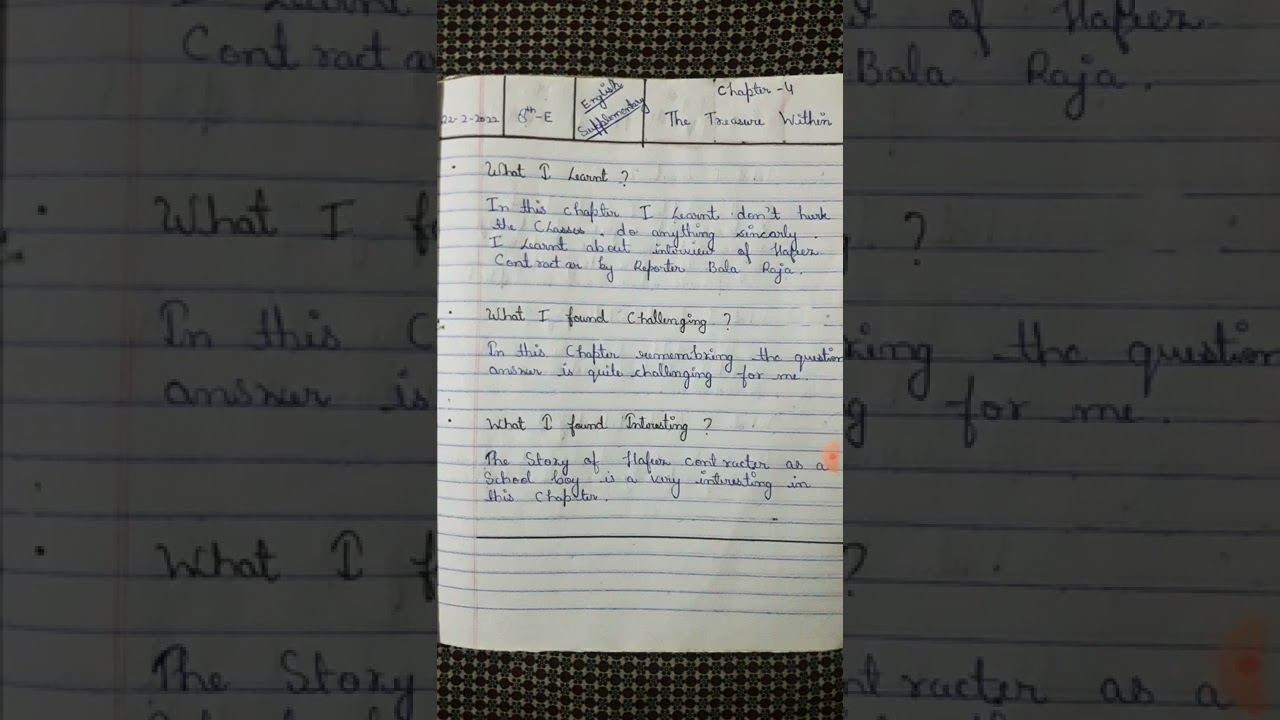 22-2-2022
8th-E
English Supplementary
Chapter -4
The Treasure Within
• What I Learnt ?
In this chapter I Learnt don't hurk
the Classes. do anything sincarly.
I Learnt about interview of Hafeez
Contractor by Reporter Bala Raja.
• What I found Challenging ?
In this Chapter remembring the question
answer is quite challenging for me.
• What I found Intresting ?
The Story of Hafeez contracter as a
School boy is a very intresting in
this Chapter.